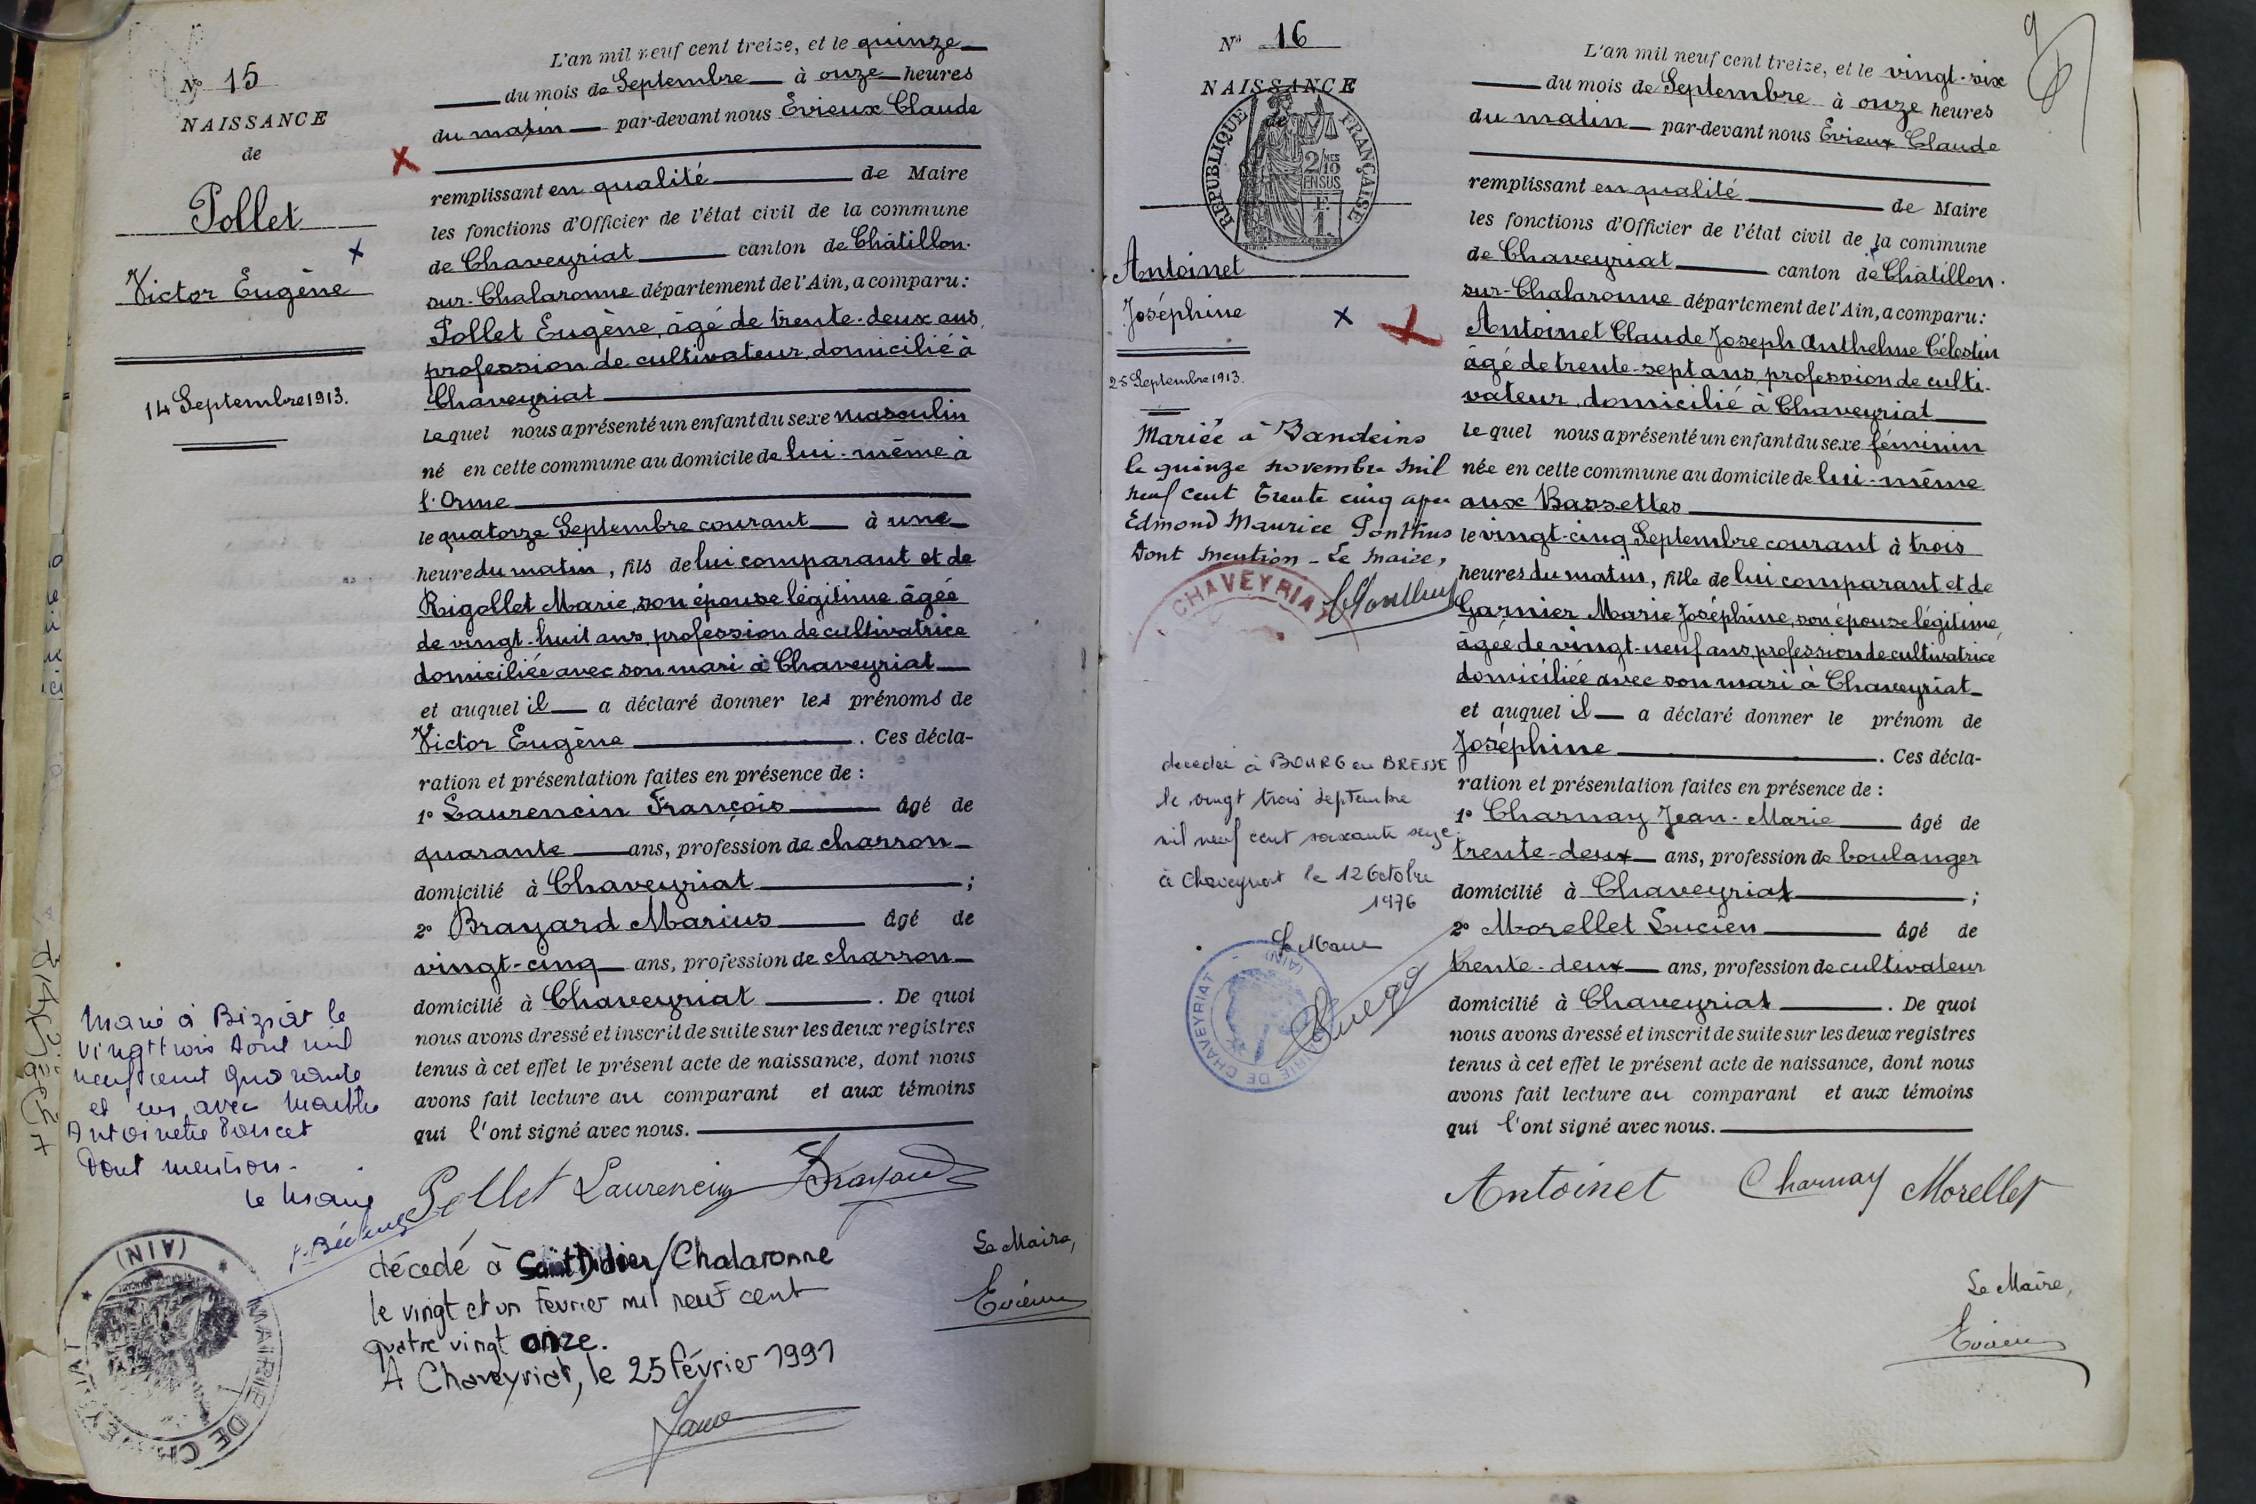 N° 15
NAISSANCE
de
Pollet
Victor Eugène
14 Septembre 1913.
L'an mil neuf cent treize, et le quinze
du mois de Septembre à onze heures
du matin par-devant nous Evieux Claude
remplissant en qualité de Maire
les fonctions d'Officier de l'état civil de la commune
de Chaveyriat canton de Châtillon-
sur-Chalaronne département de l'Ain, a comparu:
Pollet Eugène, âgé de trente-deux ans,
profession de cultivateur, domicilié à
Chaveyriat
lequel nous a présenté un enfant du sexe masculin
né en cette commune au domicile de lui-même à
l'Orme
le quatorze Septembre courant à une
heure du matin, fils de lui comparant et de
Rigollet Marie, son épouse légitime âgée
de vingt-huit ans, profession de cultivatrice
domiciliée avec son mari à Chaveyriat
et auquel il a déclaré donner les prénoms de
Victor Eugène. Ces décla-
ration et présentation faites en présence de :
1° Laurencin François âgé de
quarante ans, profession de charron
domicilié à Chaveyriat ;
2° Brayard Marius âgé de
vingt-cinq ans, profession de charron
domicilié à Chaveyriat. De quoi
nous avons dressé et inscrit de suite sur les deux registres
tenus à cet effet le présent acte de naissance, dont nous
avons fait lecture au comparant et aux témoins
qui l'ont signé avec nous.
Pollet Laurencin Brayard
Le Maire,
Evieux
Marié à Biziat le
vingt trois Aout mil
neuf cent quarante
et un avec Marthe
Antoinette Poncet
Dont mention.
le Maire
décédé à Saint Didier/Chalaronne
le vingt et un Fevrier mil neuf cent
quatre vingt onze.
A Chaveyriat, le 25 février 1991
MAIRIE DE CHAVEYRIAT (AIN)
N° 16
NAISSANCE
de
RÉPUBLIQUE FRANÇAISE
2/10 EN SUS
Antoinet
Joséphine
25 Septembre 1913.
Mariée à Bandeins
le quinze novembre mil
neuf cent trente cinq avec
Edmond Maurice Ponthus
Dont mention - Le Maire,
CHAVEYRIAT
décédée à BOURG en BRESSE
le vingt trois septembre
mil neuf cent soixante seize.
à Chaveyriat le 12 Octobre
1976
Le Maire
MAIRIE DE CHAVEYRIAT (AIN)
9
L'an mil neuf cent treize, et le vingt-six
du mois de Septembre à onze heures
du matin par-devant nous Evieux Claude
remplissant en qualité de Maire
les fonctions d'Officier de l'état civil de la commune
de Chaveyriat canton de Châtillon-
sur-Chalaronne département de l'Ain, a comparu:
Antoinet Claude Joseph Anthelme Célestin
âgé de trente-sept ans, profession de culti-
vateur, domicilié à Chaveyriat
lequel nous a présenté un enfant du sexe féminin
née en cette commune au domicile de lui-même
aux Bassettes
le vingt-cinq Septembre courant à trois
heures du matin, fille de lui comparant et de
Garnier Marie Joséphine, son épouse légitime,
âgée de vingt-neuf ans, profession de cultivatrice
domiciliée avec son mari à Chaveyriat
et auquel il a déclaré donner le prénom de
Joséphine. Ces décla-
ration et présentation faites en présence de :
1° Charnay Jean-Marie âgé de
trente-deux ans, profession de boulanger
domicilié à Chaveyriat ;
2° Morellet Lucien âgé de
trente-deux ans, profession de cultivateur
domicilié à Chaveyriat. De quoi
nous avons dressé et inscrit de suite sur les deux registres
tenus à cet effet le présent acte de naissance, dont nous
avons fait lecture au comparant et aux témoins
qui l'ont signé avec nous.
Antoinet Charnay Morellet
Le Maire,
Evieux